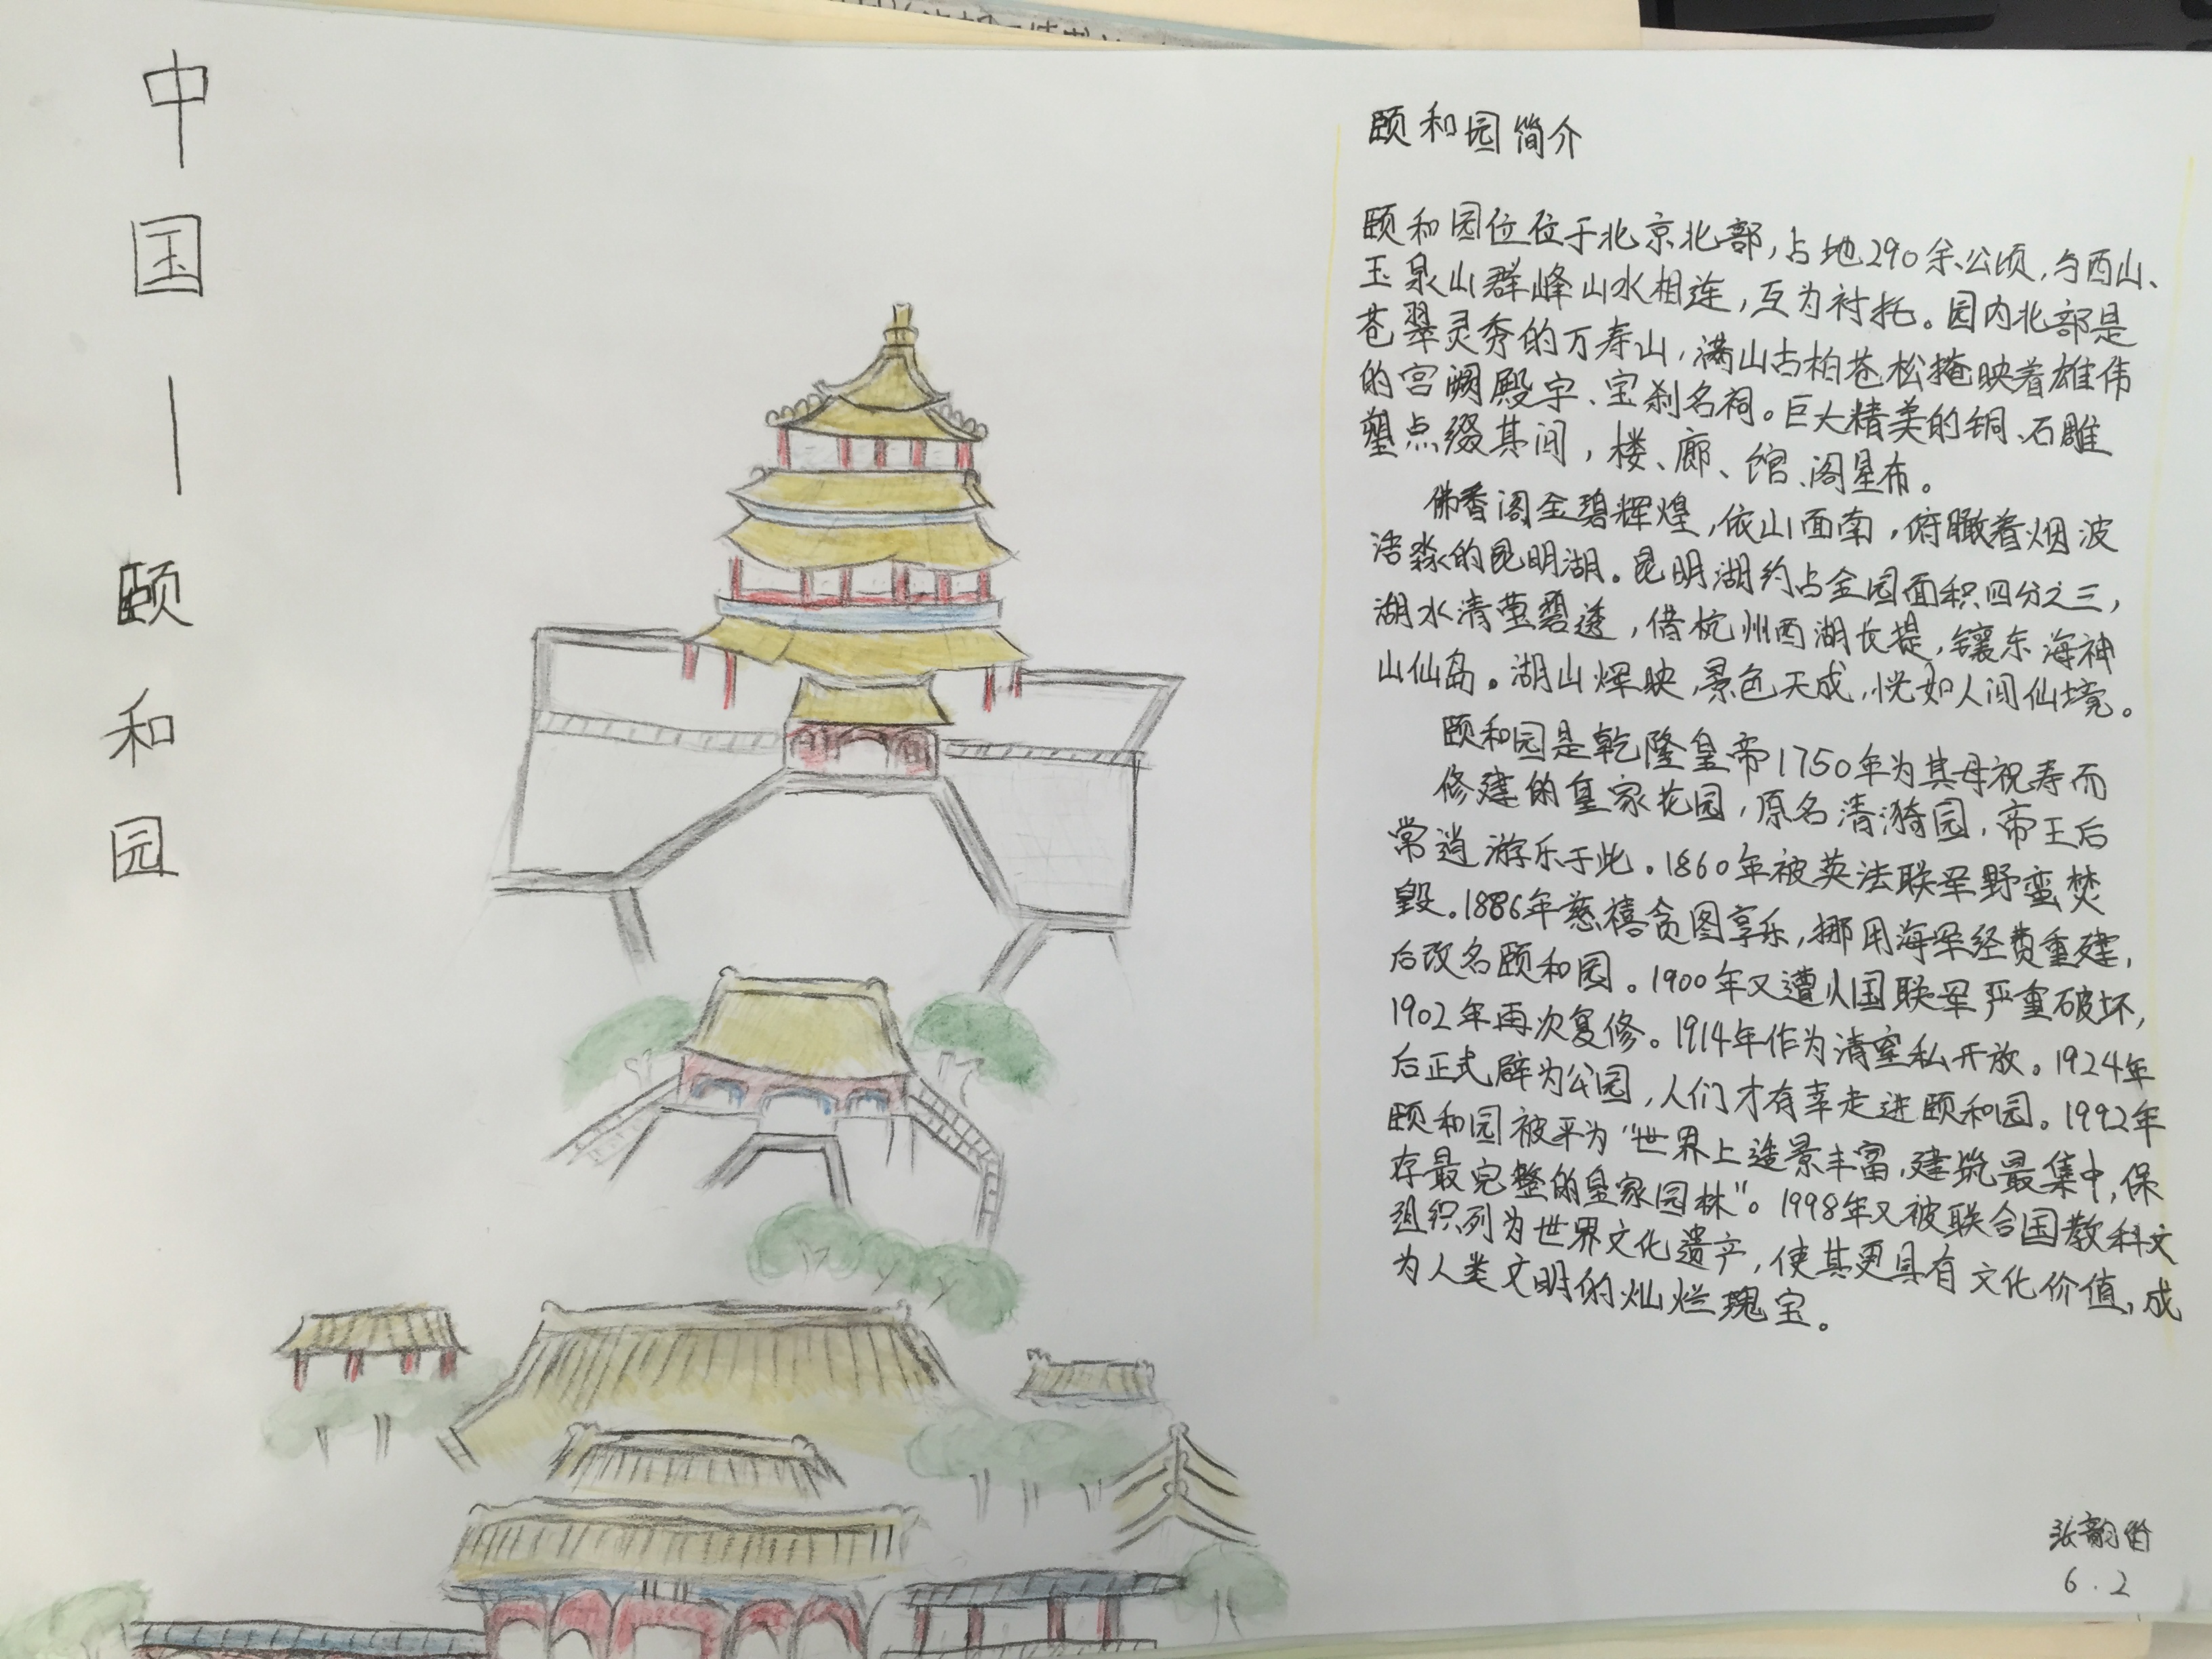 中国—颐和园
颐和园简介
颐和园位位于北京北部，占地290余公顷，与西山、
玉泉山群峰山水相连，互为衬托。园内北部是
苍翠灵秀的万寿山，满山古柏苍松掩映着雄伟
的宫阙殿宇、宝刹名祠。巨大精美的铜、石雕
塑点缀其间，楼、廊、馆、阁星布。
佛香阁金碧辉煌，依山面南，俯瞰着烟波
浩淼的昆明湖。昆明湖约占全园面积四分之三，
湖水清莹碧透，借杭州西湖长提，镶东海神
山仙岛。湖山辉映，景色天成，恍如人间仙境。
颐和园是乾隆皇帝1750年为其母祝寿而
修建的皇家花园，原名清漪园，帝王后
常逍游乐于此。1860年被英法联军野蛮焚
毁。1886年慈禧贪图享乐，挪用海军经费重建，
后改名颐和园。1900年又遭八国联军严重破坏，
1902年再次复修。1914年作为清室私开放。1924年
后正式辟为公园，人们才有幸走进颐和园。1992年
颐和园被平为“世界上造景丰富，建筑最集中，保
存最完整的皇家园林”。1998年又被联合国教科文
组织列为世界文化遗产，使其更具有文化价值，成
为人类文明的灿烂瑰宝。
张韵
6.2